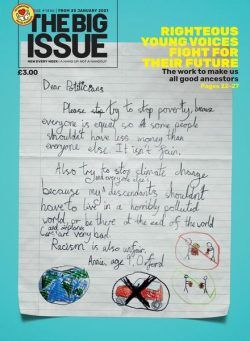 FROM 25 JANUARY 2021
THE BIG
ISSUE
A HAND UP NOT A HANDOUT
£3.00
RIGHTEOUS
YOUNG VOICES
FIGHT FOR
THEIR FUTURE
The work to make us
all good ancestors
Pages 22-27
Dear Politicians
Please stop try to stop poverty, because
everyone is equal so some people
shouldn't have less money than
everyone else. It isn't fair.
Also try to stop climate change
(and everyone else's)
because my descendants shouldn't
have to live in a horribly polluted
world, or be there at the end of the world
and airplanes
Cars are very bad.
Racism is also unfair.
Annie, age 9, Oxford